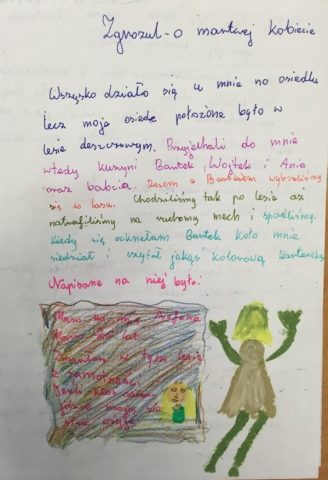 Zgrozul-o martwej kobiecie
Wszysko działo się u mnie no osiedlu
lecz moje osiedle położone było w
lesie deszczowym. Przyjechali do mnie
wtedy kuzyni Bartek, Wojtek i Ania
oraz babcia. Razem z Bartkiem wybraliśmy
się do lasu. Chodziliśmy tak po lesie aż
natrafiliśmy na ruchomy mech i spadliśmy.
Kiedy się ocknęłam Bartek koło mnie
siedział i czytał jakąś kolorową karteczkę.
Napisane na niej było.
Mam na imię
Mam lat.
Zmarłam w tym lesie
z samotności.
Jeśli